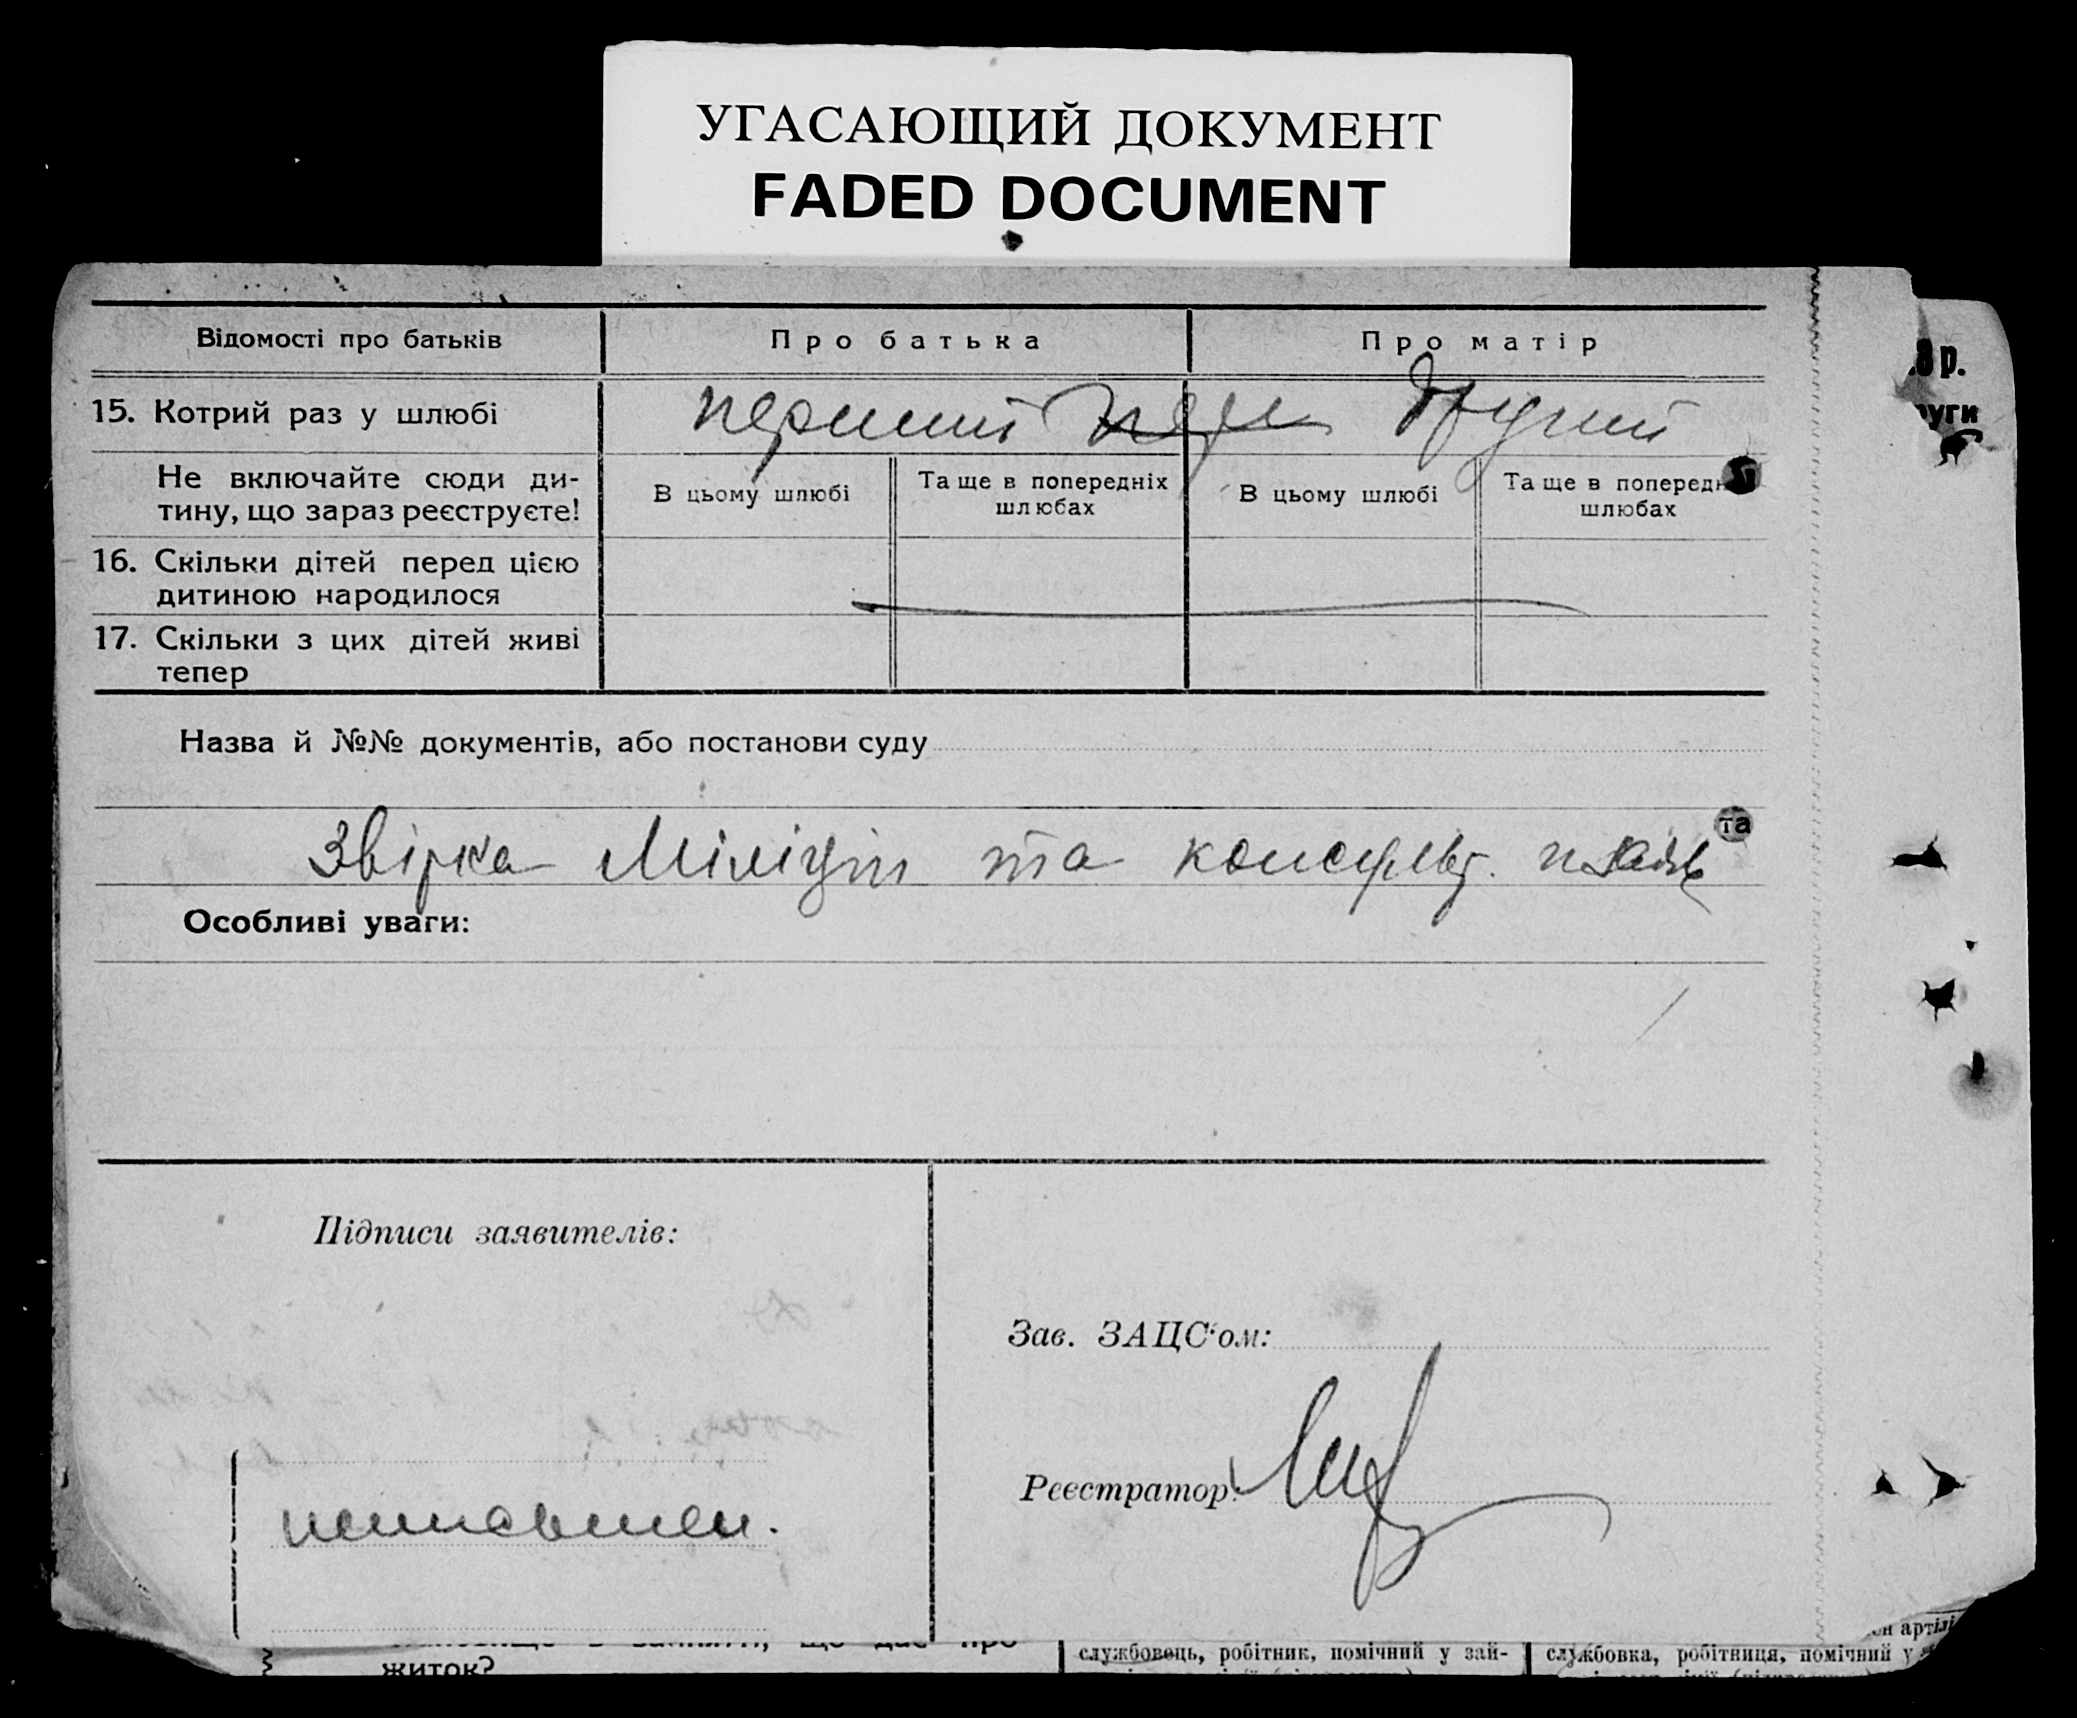 УГАСАЮЩИЙ ДОКУМЕНТ
FADED DOCUMENT
Відомості про батьків
Про батька
Про матір
15. Котрий раз у шлюбі
перший
другий
Не включайте сюди ди-
тину, що зараз реєструєте!
В цьому шлюбі
Та ще в попередніх
шлюбах
В цьому шлюбі
Та ще в поперед
шлюбах
16. Скільки дітей перед цією
дитиною народилося
17. Скільки з цих дітей живі
тепер
Назва й №№ документів, або постанови суду
Звірка Міліції та консульт.
та
Особливі уваги:
Підписи заявителів:
Зав. ЗАЦС‘ом:
Реєстратор:
8 р.
руги
житок?
службовець, робітник, помічний у зай-
службовка, робітниця, помічний у
артілі